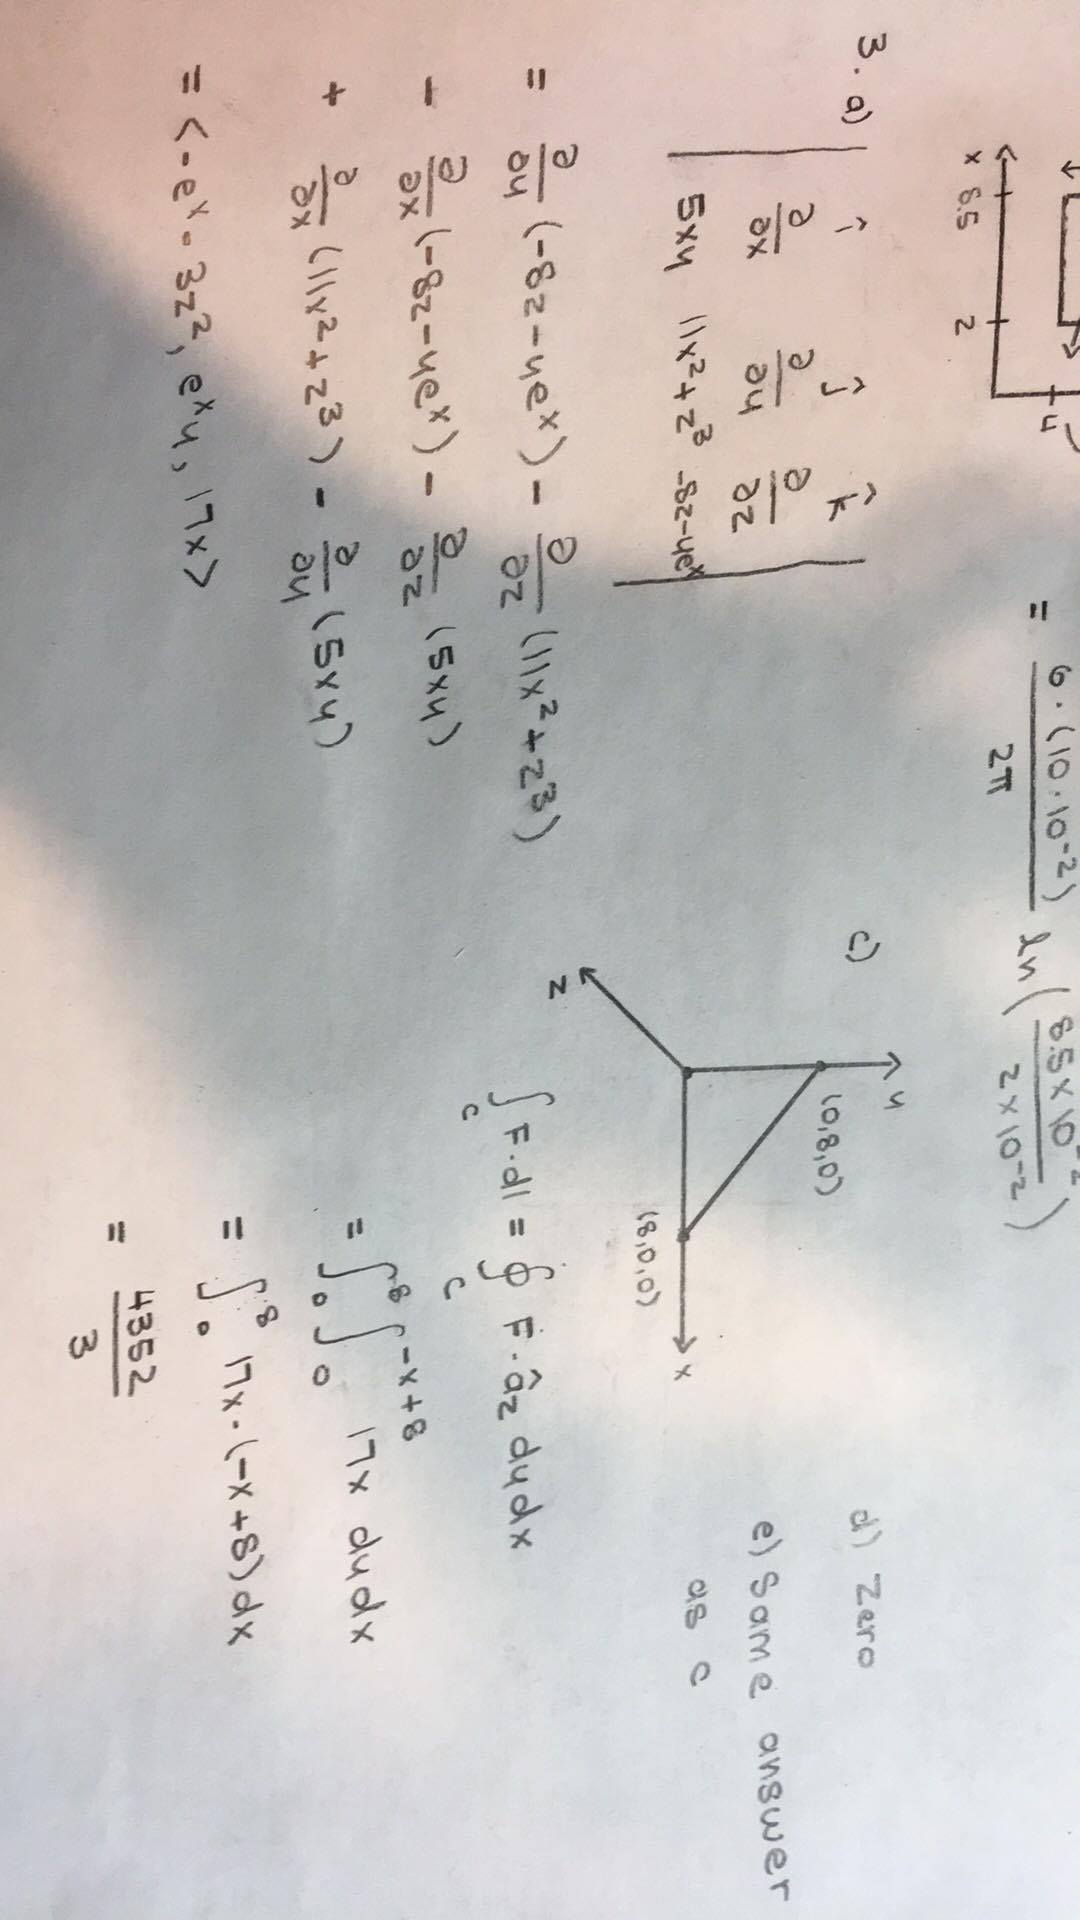 = 6·(10·10⁻²) / 2π ln( 8.5×10⁻² / 2×10⁻² )
4
x 8.5 2
3. a) | î ĵ k̂ |
∂/∂x ∂/∂y ∂/∂z
5xy 11x²+z³ -8z-yeˣ
= ∂/∂y (-8z-yeˣ) - ∂/∂z (11x²+z³)
- ∂/∂x (-8z-yeˣ) - ∂/∂z (5xy)
+ ∂/∂x (11x²+z³) - ∂/∂y (5xy)
= <-eˣ - 3z², eˣy, 17x>
c)
y
(0,8,0)
x
(8,0,0)
z
∫_C F·dl = ∮_C F·â_z dydx
= ∫₀⁸ ∫₀^(-x+8) 17x dydx
= ∫₀⁸ 17x·(-x+8)dx
= 4352/3
d) Zero
e) Same answer
as c